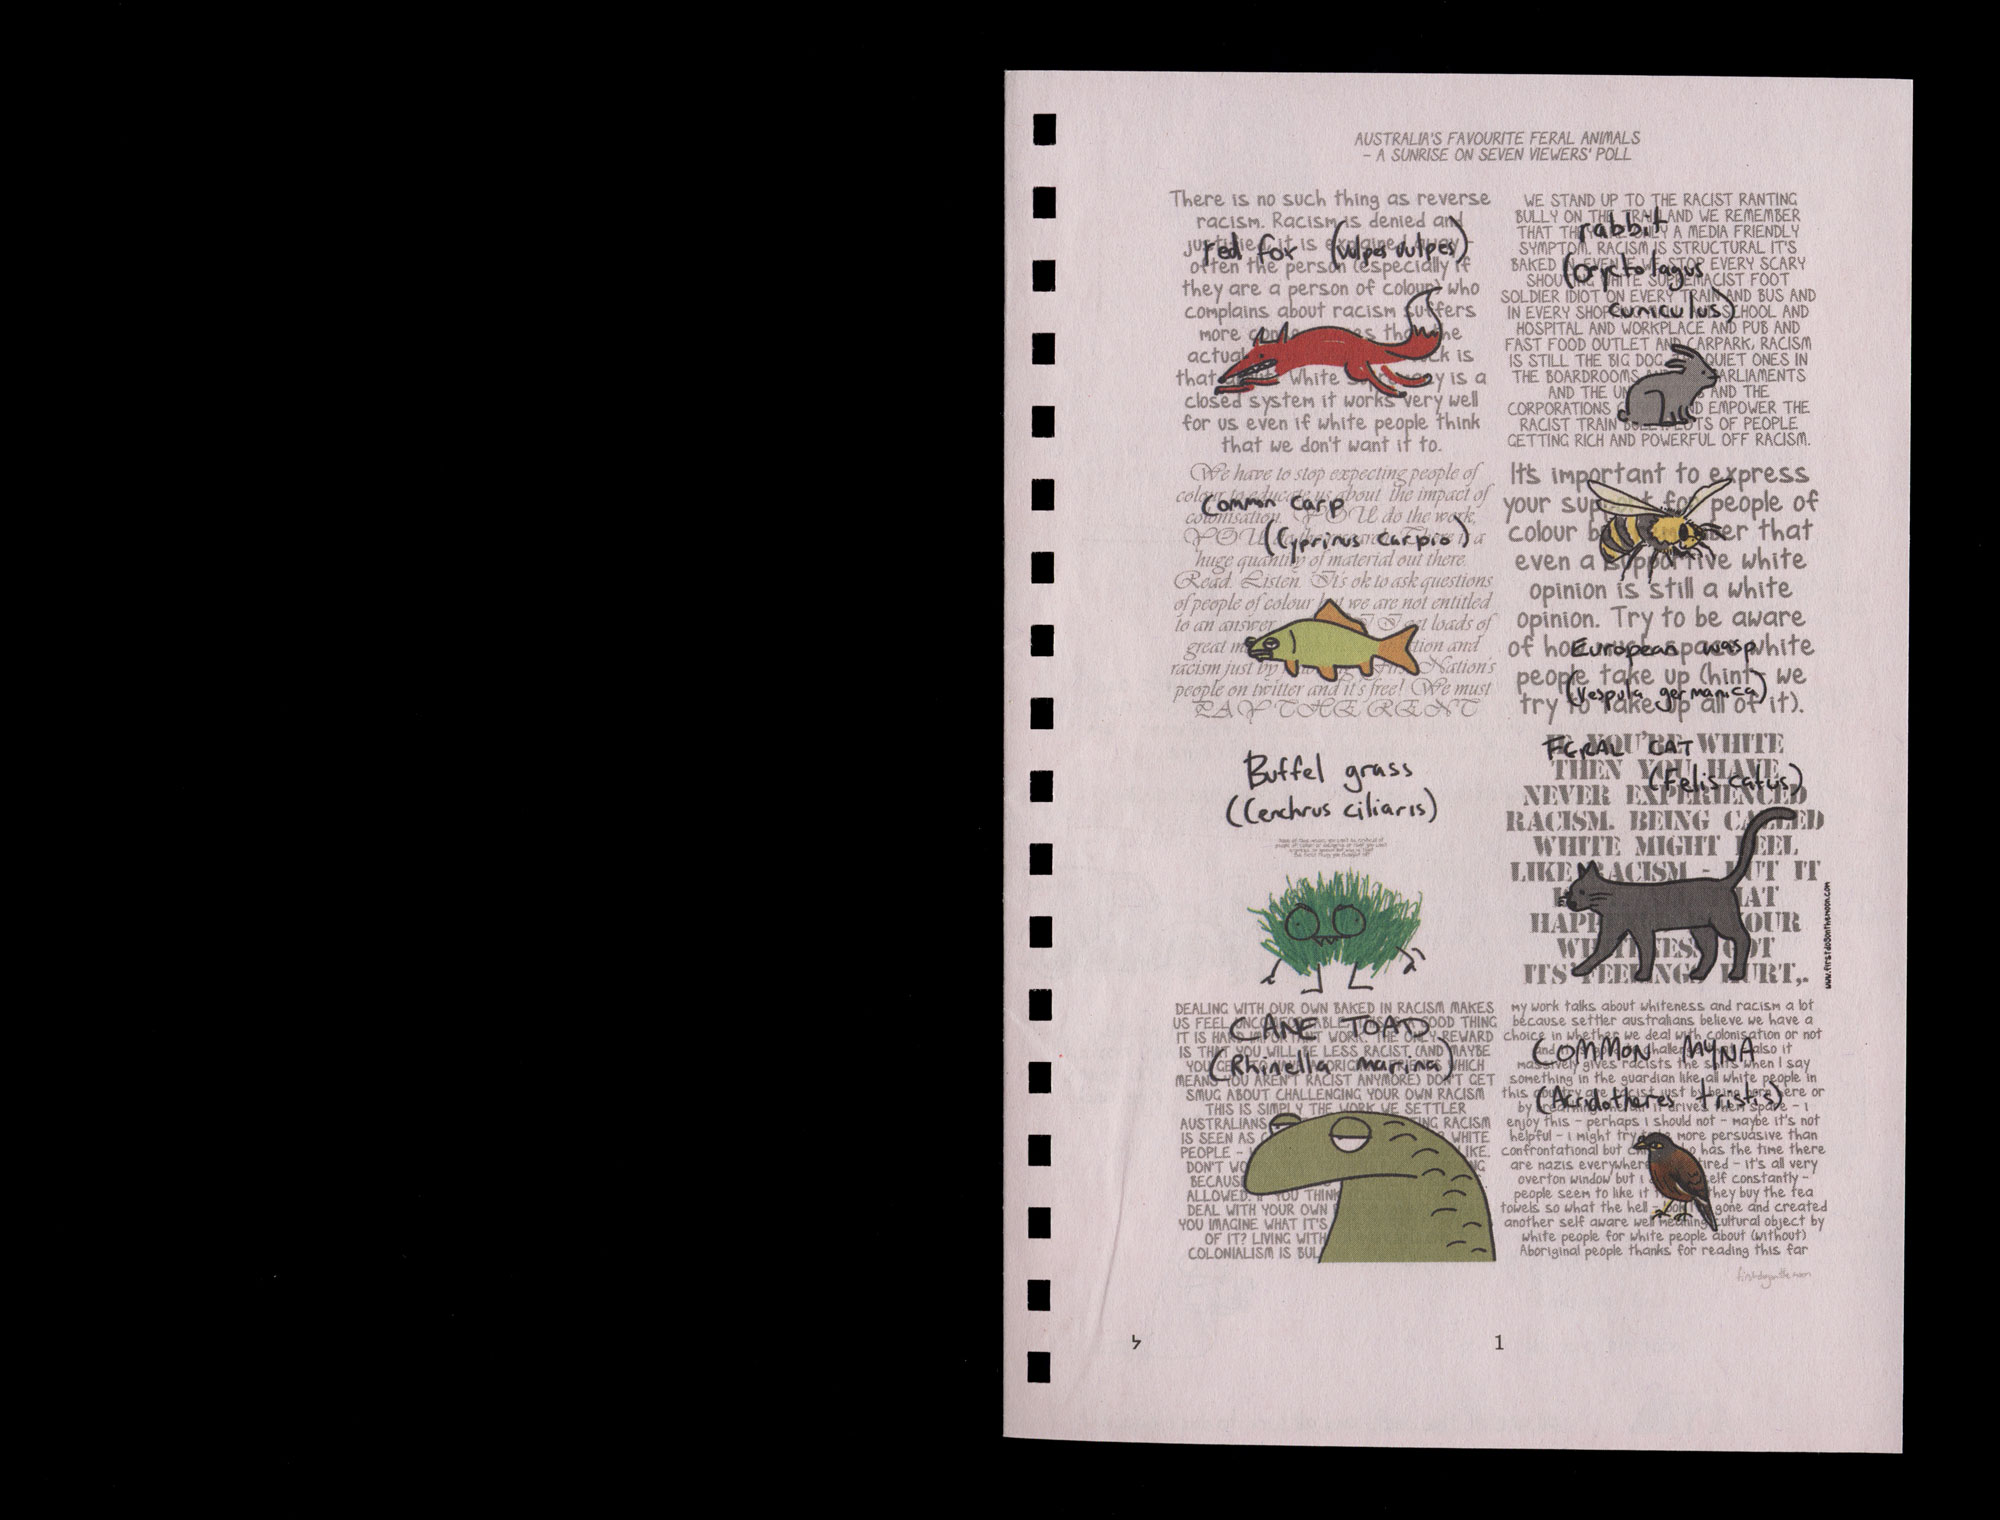 AUSTRALIA'S FAVOURITE FERAL ANIMALS
- A SUNRISE ON SEVEN VIEWERS' POLL
There is no such thing as reverse
racism. Racism is denied and
justified, it is explained away -
red fox (Vulpes vulpes)
often the person (especially if
they are a person of colour) who
complains about racism suffers
more than the
actual is
that White supremacy is a
closed system it works very well
for us even if white people think
that we don't want it to.
WE STAND UP TO THE RACIST RANTING
BULLY ON THE TRAIN AND WE REMEMBER
rabbit
THAT THEY ARE ONLY A MEDIA FRIENDLY
SYMPTOM. RACISM IS STRUCTURAL IT'S
BAKED IN. EVEN IF WE STOP EVERY SCARY
(Oryctolagus
SHOUTING WHITE SUPREMACIST FOOT
SOLDIER IDIOT ON EVERY TRAIN AND BUS AND
cuniculus)
IN EVERY SHOP AND SCHOOL AND
HOSPITAL AND WORKPLACE AND PUB AND
FAST FOOD OUTLET AND CARPARK, RACISM
IS STILL THE BIG DOG. QUIET ONES IN
THE BOARDROOMS AND PARLIAMENTS
AND THE AND THE
CORPORATIONS EMPOWER THE
RACIST TRAIN BULLY. LOTS OF PEOPLE
GETTING RICH AND POWERFUL OFF RACISM.
We have to stop expecting people of
colour to educate us about the impact of
Common carp
colonisation. YOU do the work,
YOU a
(Cyprinus carpio)
huge quantity of material out there.
Read. Listen. It's ok to ask questions
of people of colour but we are not entitled
to an answer. I get loads of
great and
racism just by First Nation's
people on twitter and it's free! We must
PAY THE RENT
It's important to express
your support for people of
colour but remember that
even a supportive white
opinion is still a white
opinion. Try to be aware
of how much space white
European wasp
people take up (hint - we
(Vespula germanica)
try to take up all of it).
Buffel grass
(Cenchrus ciliaris)
IF YOU'RE WHITE
FERAL CAT
THEN YOU HAVE
(Felis catus)
NEVER EXPERIENCED
RACISM. BEING CALLED
WHITE MIGHT FEEL
LIKE RACISM - BUT IT
HAPPENED YOUR
WHITENESS GOT
ITS FEELINGS HURT,.
www.firstdogonthemoon.com
DEALING WITH OUR OWN BAKED IN RACISM MAKES
US FEEL UNCOMFORTABLE THIS IS A GOOD THING
CANE TOAD
IT IS HARD IMPORTANT WORK. THE ONLY REWARD
IS THAT YOU WILL BE LESS RACIST (AND MAYBE
(Rhinella marina)
YOU GET TO HAVE ABORIGINAL FRIENDS WHICH
MEANS YOU AREN'T RACIST ANYMORE) DON'T GET
SMUG ABOUT CHALLENGING YOUR OWN RACISM
THIS IS SIMPLY THE WORK WE SETTLER
AUSTRALIANS RACISM
IS SEEN AS WHITE
PEOPLE -
DON'T
BECAUSE
ALLOWED. IF YOU THINK
DEAL WITH YOUR OWN
YOU IMAGINE WHAT IT'S
OF IT? LIVING WITH
COLONIALISM IS
my work talks about whiteness and racism a lot
because settler australians believe we have a
choice in whether we deal with colonisation or not
COMMON MYNA
and also it
massively gives racists the shits when I say
something in the guardian like all white people in
this country are racist just by being born here or
(Acridotheres tristis)
by breathing the air it drives them spare - i
enjoy this - perhaps i should not - maybe it's not
helpful - i might try to be more persuasive than
confrontational but who has the time there
are nazis everywhere tired - it's all very
overton window but i myself constantly -
people seem to like it they buy the tea
towels so what the hell - look i gone and created
another self aware well meaning cultural object by
white people for white people about (without)
Aboriginal people thanks for reading this far
firstdogonthemoon
1